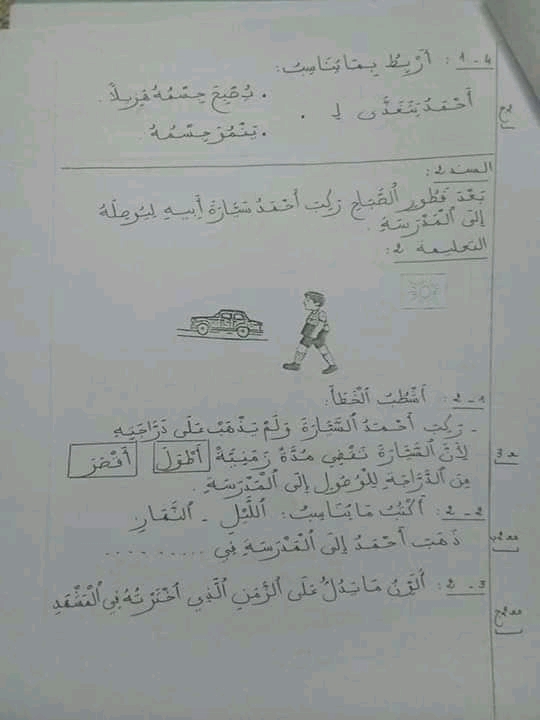 1 - 4 : أَرْبِطُ بِمَا يُنَاسِبُ:
. يُصْبِحَ جِسْمُهُ هَزِيلاً.
أَحْمَدُ يَتَغَذَّى لِ .
. يَنْمُوَ جِسْمُهُ.
السند 2 :
بَعْدَ فَطُورِ الصَّبَاحِ رَكِبَ أَحْمَدُ سَيَّارَةَ أَبِيهِ لِيُوصِلَهُ
إِلَى الْمَدْرَسَةِ.
التعليمة 2 :
2 - 1 : أَشْطُبُ الْخَطَأَ:
- رَكِبَ أَحْمَدُ السَّيَّارَةَ وَلَمْ يَذْهَبْ عَلَى دَرَّاجَتِهِ
لِأَنَّ السَّيَّارَةَ تَقْضِي مُدَّةً زَمَنِيَّةً أَطْوَلَ أَقْصَرَ
مِنَ الدَّرَّاجَةِ لِلْوُصُولِ إِلَى الْمَدْرَسَةِ.
2 - 2 : أَكْتُبُ مَا يُنَاسِبُ: اللَّيْلِ - النَّهَارِ
ذَهَبَ أَحْمَدُ إِلَى الْمَدْرَسَةِ فِي ..........
2 - 3 : أُلَوِّنُ مَا يَدُلُّ عَلَى الزَّمَنِ الَّذِي اخْتَرْتُهُ فِي الْمَشْهَدِ